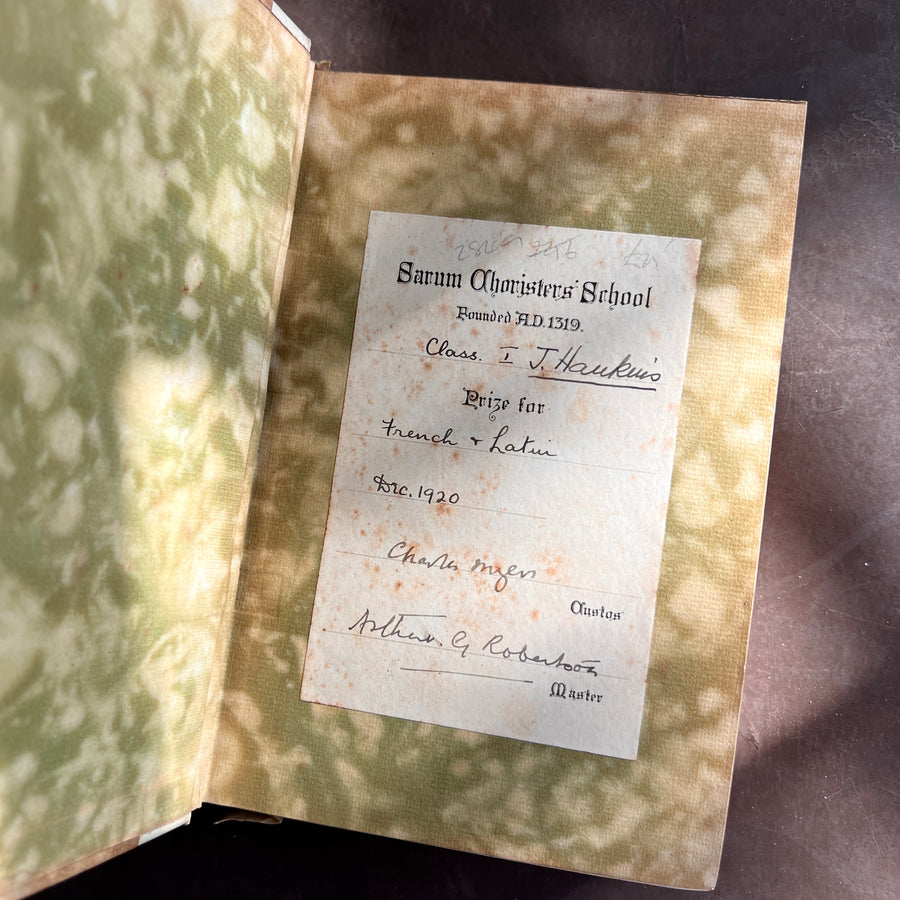 Sarum Choristers' School
Founded A.D. 1319.
Class. I J. Hawkins
Prize for
French & Latin
Dec. 1920
Charles Myers
Custos
Arthur. G Robertson
Master